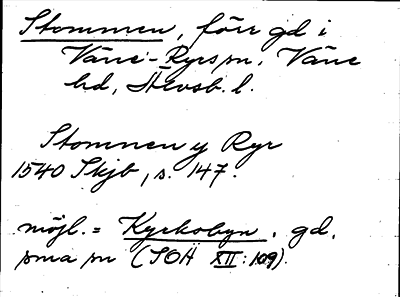 Stommen, förr gd i
Väne-Ryrs sn, Väne
hd, Älvsb. l.
Stomnen y Ryr
1540 Skjb, s. 147.
möjl. = Kyrkobyn, gd,
sma sn (SOÄ XII: 109).